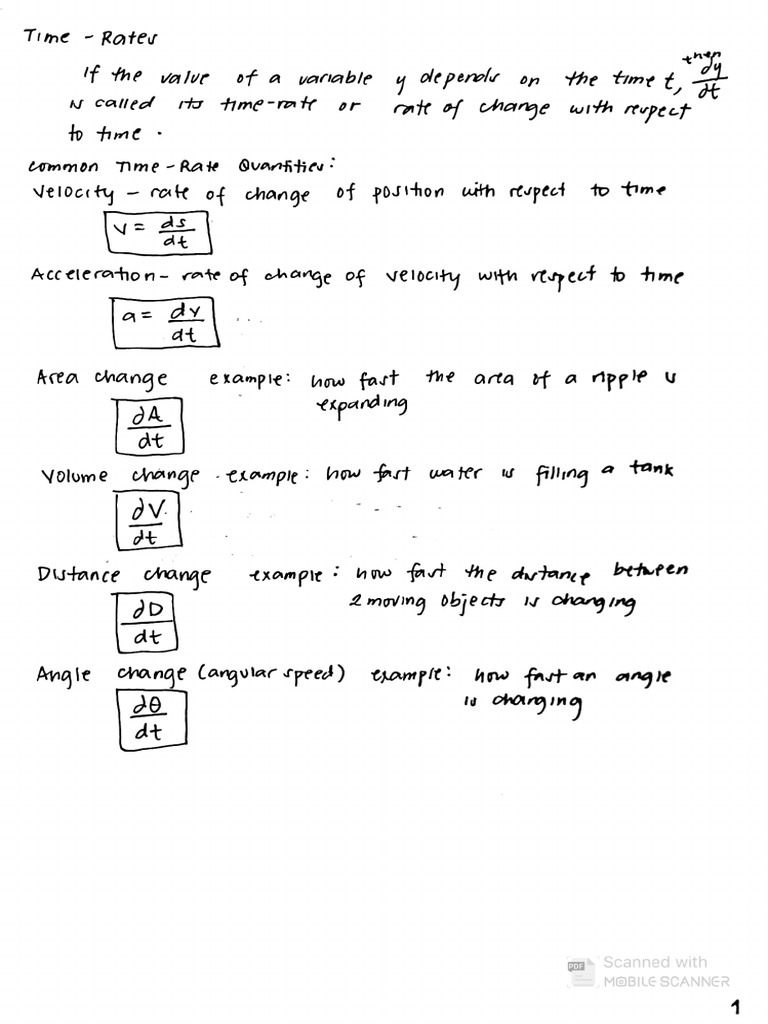 Time - Rates
If the value of a variable y depends on the time t, then dy/dt
is called its time-rate or rate of change with respect
to time.
Common Time-Rate Quantities:
Velocity - rate of change of position with respect to time
v = ds/dt
Acceleration - rate of change of velocity with respect to time
a = dv/dt ...
Area change example: how fast the area of a ripple is
expanding
dA/dt
Volume change . example: how fast water is filling a tank
dV/dt
Distance change example: how fast the distance between
2 moving objects is changing
dD/dt
Angle change (angular speed) example: how fast an angle
is changing
dθ/dt
PDF Scanned with
MOBILE SCANNER
1